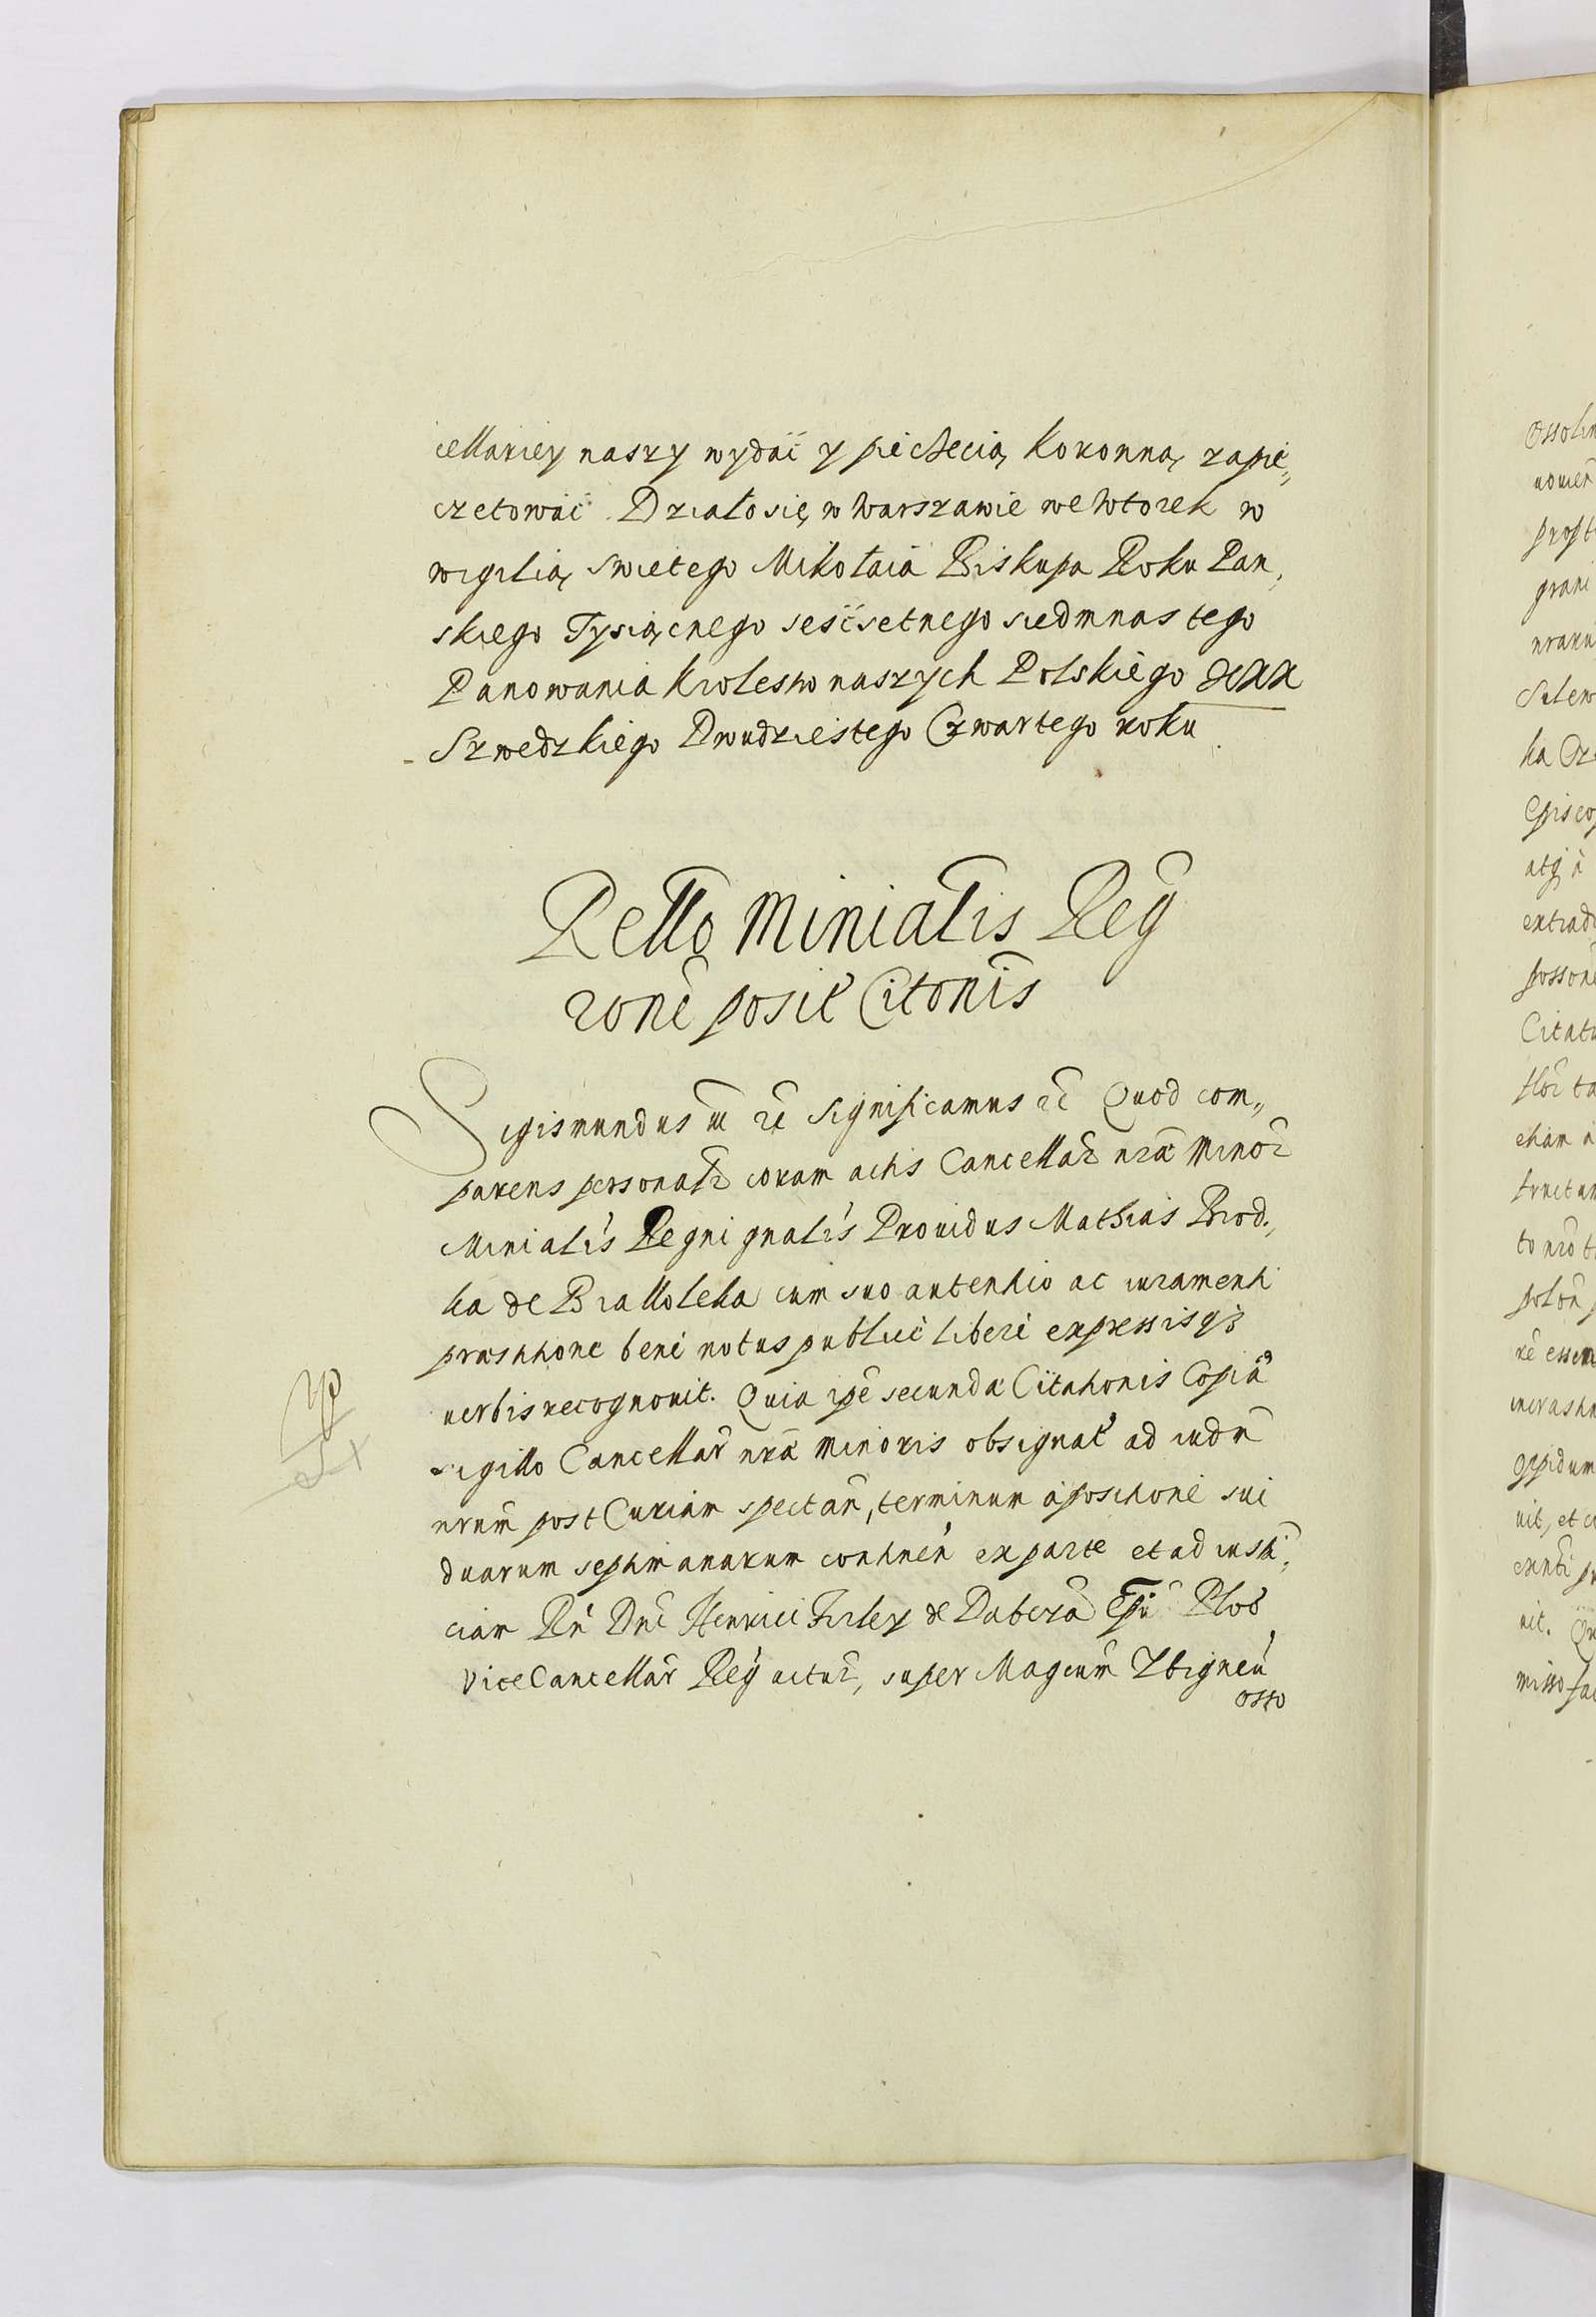 cellariey naszy wydać y piechecią Koronną zapie„
czetować. Działo się w Warszawie we Wtorek w
wigilią swietego Mikołaia Biskupa Roku Pan,
skiego Tysiącnego sesćsetnego siedmnastego
Panowania Krolestw naszych Polskiego XXX
Szwedzkiego Dwudziestego Czwartego roku
Rello Minialis Reg
rone posit Citonis
Sigismundus III rc Significamus rc Quod com„
parens personalr coram actis Cancellar nra Minor
Minialis Regni gnalis Prouidus Mathias Brod,
ka de Bralloleka cum suo autentico ac iuramenti
præstitione bene notus publice libere expressisq3
uerbis recognouit. Quia ipe secunda Citationis Copia
sigillo Cancellar nra Minoris obsignat ad iudm
nrum post Curiam spectan, terminum a positione sui
duarum septimanarum continen ex parte et ad insti,
ciam Rn Dni Henrici Firley de Dabrra Epi Ploc
ViceCancellar Reg actur, super Magcum Zbigneu
Osso
Ossolin
prop
grani
Citatu
etiam a
oppidum
uit, et
nit. Qu
misso fa